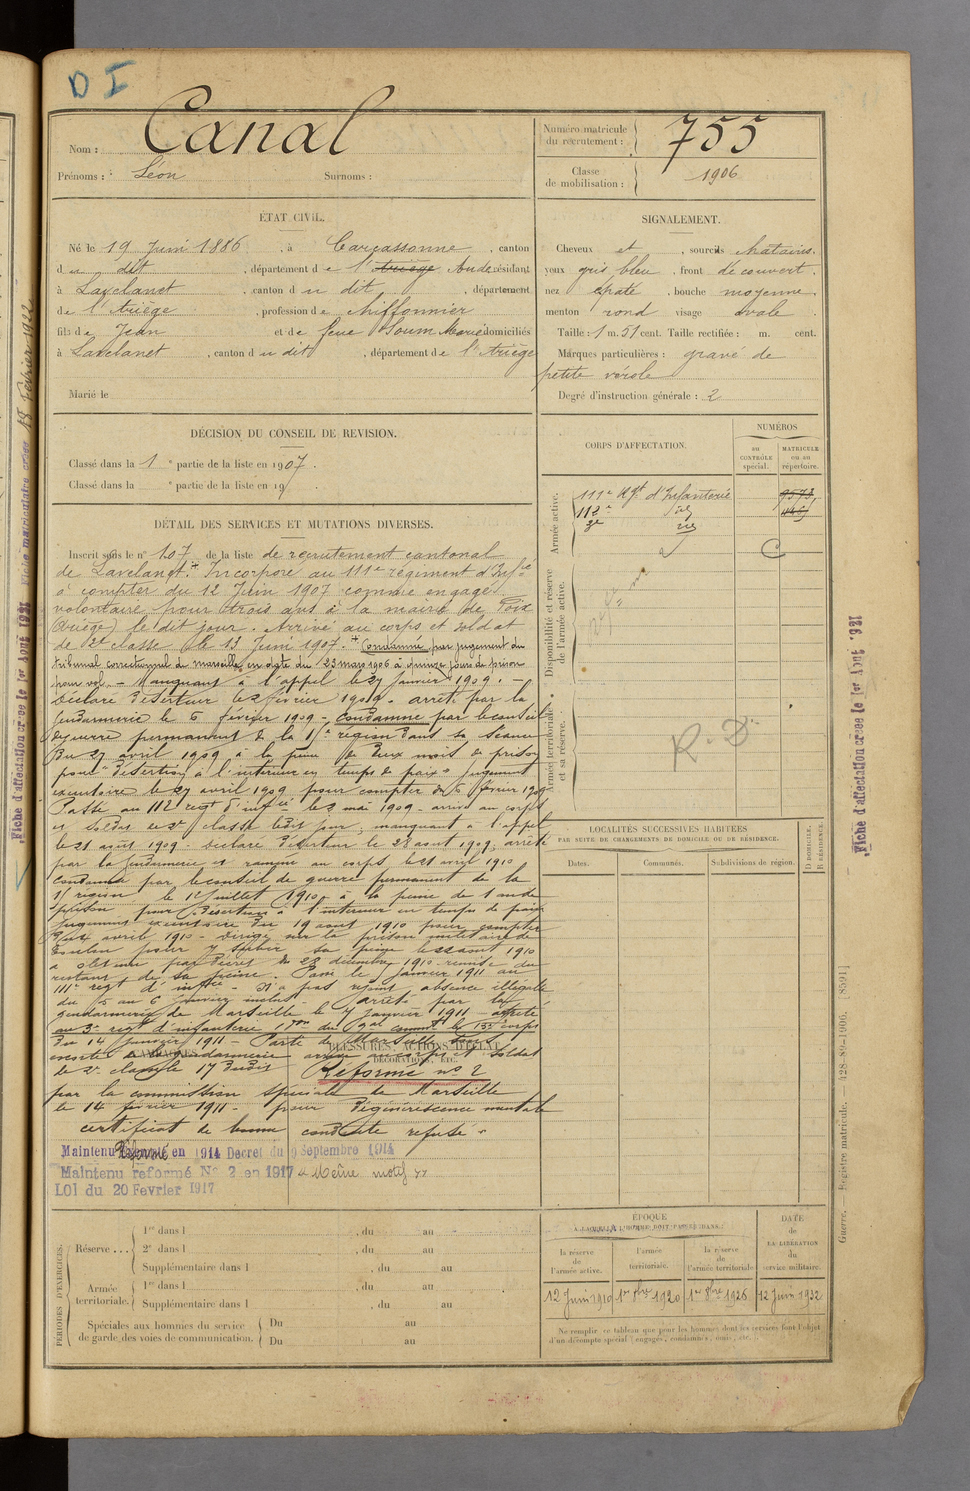 D I
Nom : Canal
Prénoms : Léon Surnoms :
Numéro matricule du recrutement : 755
Classe de mobilisation : 1906
ÉTAT CIVIL.
Né le 19 Juin 1886, à Carcassonne, canton
du dit, département de l'Ariège Aude résidant
à Lavelanet, canton du dit, département
de l'Ariège, profession de chiffonnier
fils de Jean et de feue Soum Marie domiciliés
à Lavelanet, canton du dit, département de l'Ariège
Marié le
SIGNALEMENT.
Cheveux et, sourcils chatains,
yeux gris bleu, front découvert,
nez épaté, bouche moyenne,
menton rond visage ovale.
Taille : 1 m. 51 cent. Taille rectifiée : m. cent.
Marques particulières : gravé de
petite vérole
Degré d'instruction générale : 2
DÉCISION DU CONSEIL DE REVISION.
Classé dans la 1e partie de la liste en 1907.
Classé dans la e partie de la liste en 19
DÉTAIL DES SERVICES ET MUTATIONS DIVERSES.
Inscrit sous le n° 107 de la liste de recrutement cantonal
de Lavelanet. + Incorporé au 111e régiment d'Inf.ie
à compter du 12 Juin 1907 comme engagé
volontaire pour trois ans à la mairie de Foix
(Ariège) le dit jour. Arrivé au corps et soldat
de 2e classe le 13 Juin 1907. + Condamné par jugement du
tribunal correctionnel de Marseille en date du 23 mars 1906 à quinze jours de prison
pour vol. - Manquant à l'appel le 27 Janvier 1909. -
Déclaré déserteur le 2 février 1909. arrêté par la
gendarmerie le 6 février 1909 - Condamné par le conseil
de guerre permanent de la 15e région dans sa séance
du 27 avril 1909 à la peine de deux mois de prison
pour "désertion à l'intérieur en temps de paix" jugement
exécutoire le 27 avril 1909 pour compter du 6 février 1909
Passé au 112e régt d'infie le 2 mai 1909 - arrivé au corps
et soldat de 2e classe ledit jour, manquant à l'appel
le 21 août 1909. Déclaré déserteur le 28 août 1909, arrêté
par la gendarmerie et ramené au corps le 21 avril 1910
Condamné par le conseil de guerre permanent de la
15e région le 1er Juillet 1910 à la peine de 1 an de
prison pour désertion à l'intérieur en temps de paix
jugement exécutoire du 19 août 1910 pour compter
du avril 1910 - Dirigé sur la prison militaire de
Toulon pour y subir sa peine le 22 août 1910
a obtenu par décret du 28 décembre 1910 remise du
restant de sa peine. Passé le Janvier 1911 au
111e régt d'infie - N'a pas rejoint absence illégale
du 5 au 6 Janvier inclus. arrêté par la
gendarmerie de Marseille le 7 Janvier 1911 - affecté
au 3e régt d'infanterie on du Gal commdt le 15e corps
du 14 Janvier 1911 - Parti de Marseille sous
escorte de gendarmerie arrivé au corps et soldat
de 2e classe le 17 dudit
BLESSURES, ACTIONS D'ÉCLAT,
DÉCORATIONS, ETC.
CAMPAGNES.
Réformé n° 2
par la commission spéciale de Marseille
le 14 février 1911 - pour dégénérescence mentale
certificat de bonne conduite refusé.
Maintenu Réformé en 1914 Decret du 9 Septembre 1914
Maintenu reformé N° 2 en 1917 « Même motif »
LOI du 20 Fevrier 1917
CORPS D'AFFECTATION.
NUMÉROS
au CONTRÔLE spécial.
MATRICULE ou au répertoire.
Armée active.
111e Rgt d'Infanterie 9573
112e id
3e id
C
Disponibilité et réserve de l'armée active.
Armée territoriale et sa réserve.
R. D
LOCALITÉS SUCCESSIVES HABITÉES
PAR SUITE DE CHANGEMENTS DE DOMICILE OU DE RÉSIDENCE.
Dates. Communes. Subdivisions de région.
D DOMICILE.
R RÉSIDENCE.
PÉRIODES D'EXERCICES.
Réserve ...
1re dans l , du au
2e dans l , du au
Supplémentaire dans l , du au
Armée territoriale.
1re dans l , du au
Supplémentaire dans l , du au
Spéciales aux hommes du service de garde des voies de communication.
Du au
Du au
ÉPOQUE
À LAQUELLE L'HOMME DOIT PASSER DANS
la réserve de l'armée active.
l'armée territoriale.
la réserve de l'armée territoriale
DATE DE LA LIBÉRATION du service militaire.
12 Juin 1910 1er 8bre 1920 1er 8bre 1926 12 Juin 1932
Ne remplir ce tableau que pour les hommes dont les services font l'objet
d'un décompte spécial (engagés, condamnés, omis, etc.).
Fiche d'affectation créée le 1er Aout 1921
Fiche matriculaire créée 18 Février 1922
Fiche d'affectation créée le 1er Aout 1921
Guerre. Registre matricule. — 428-89-1906. [8591]